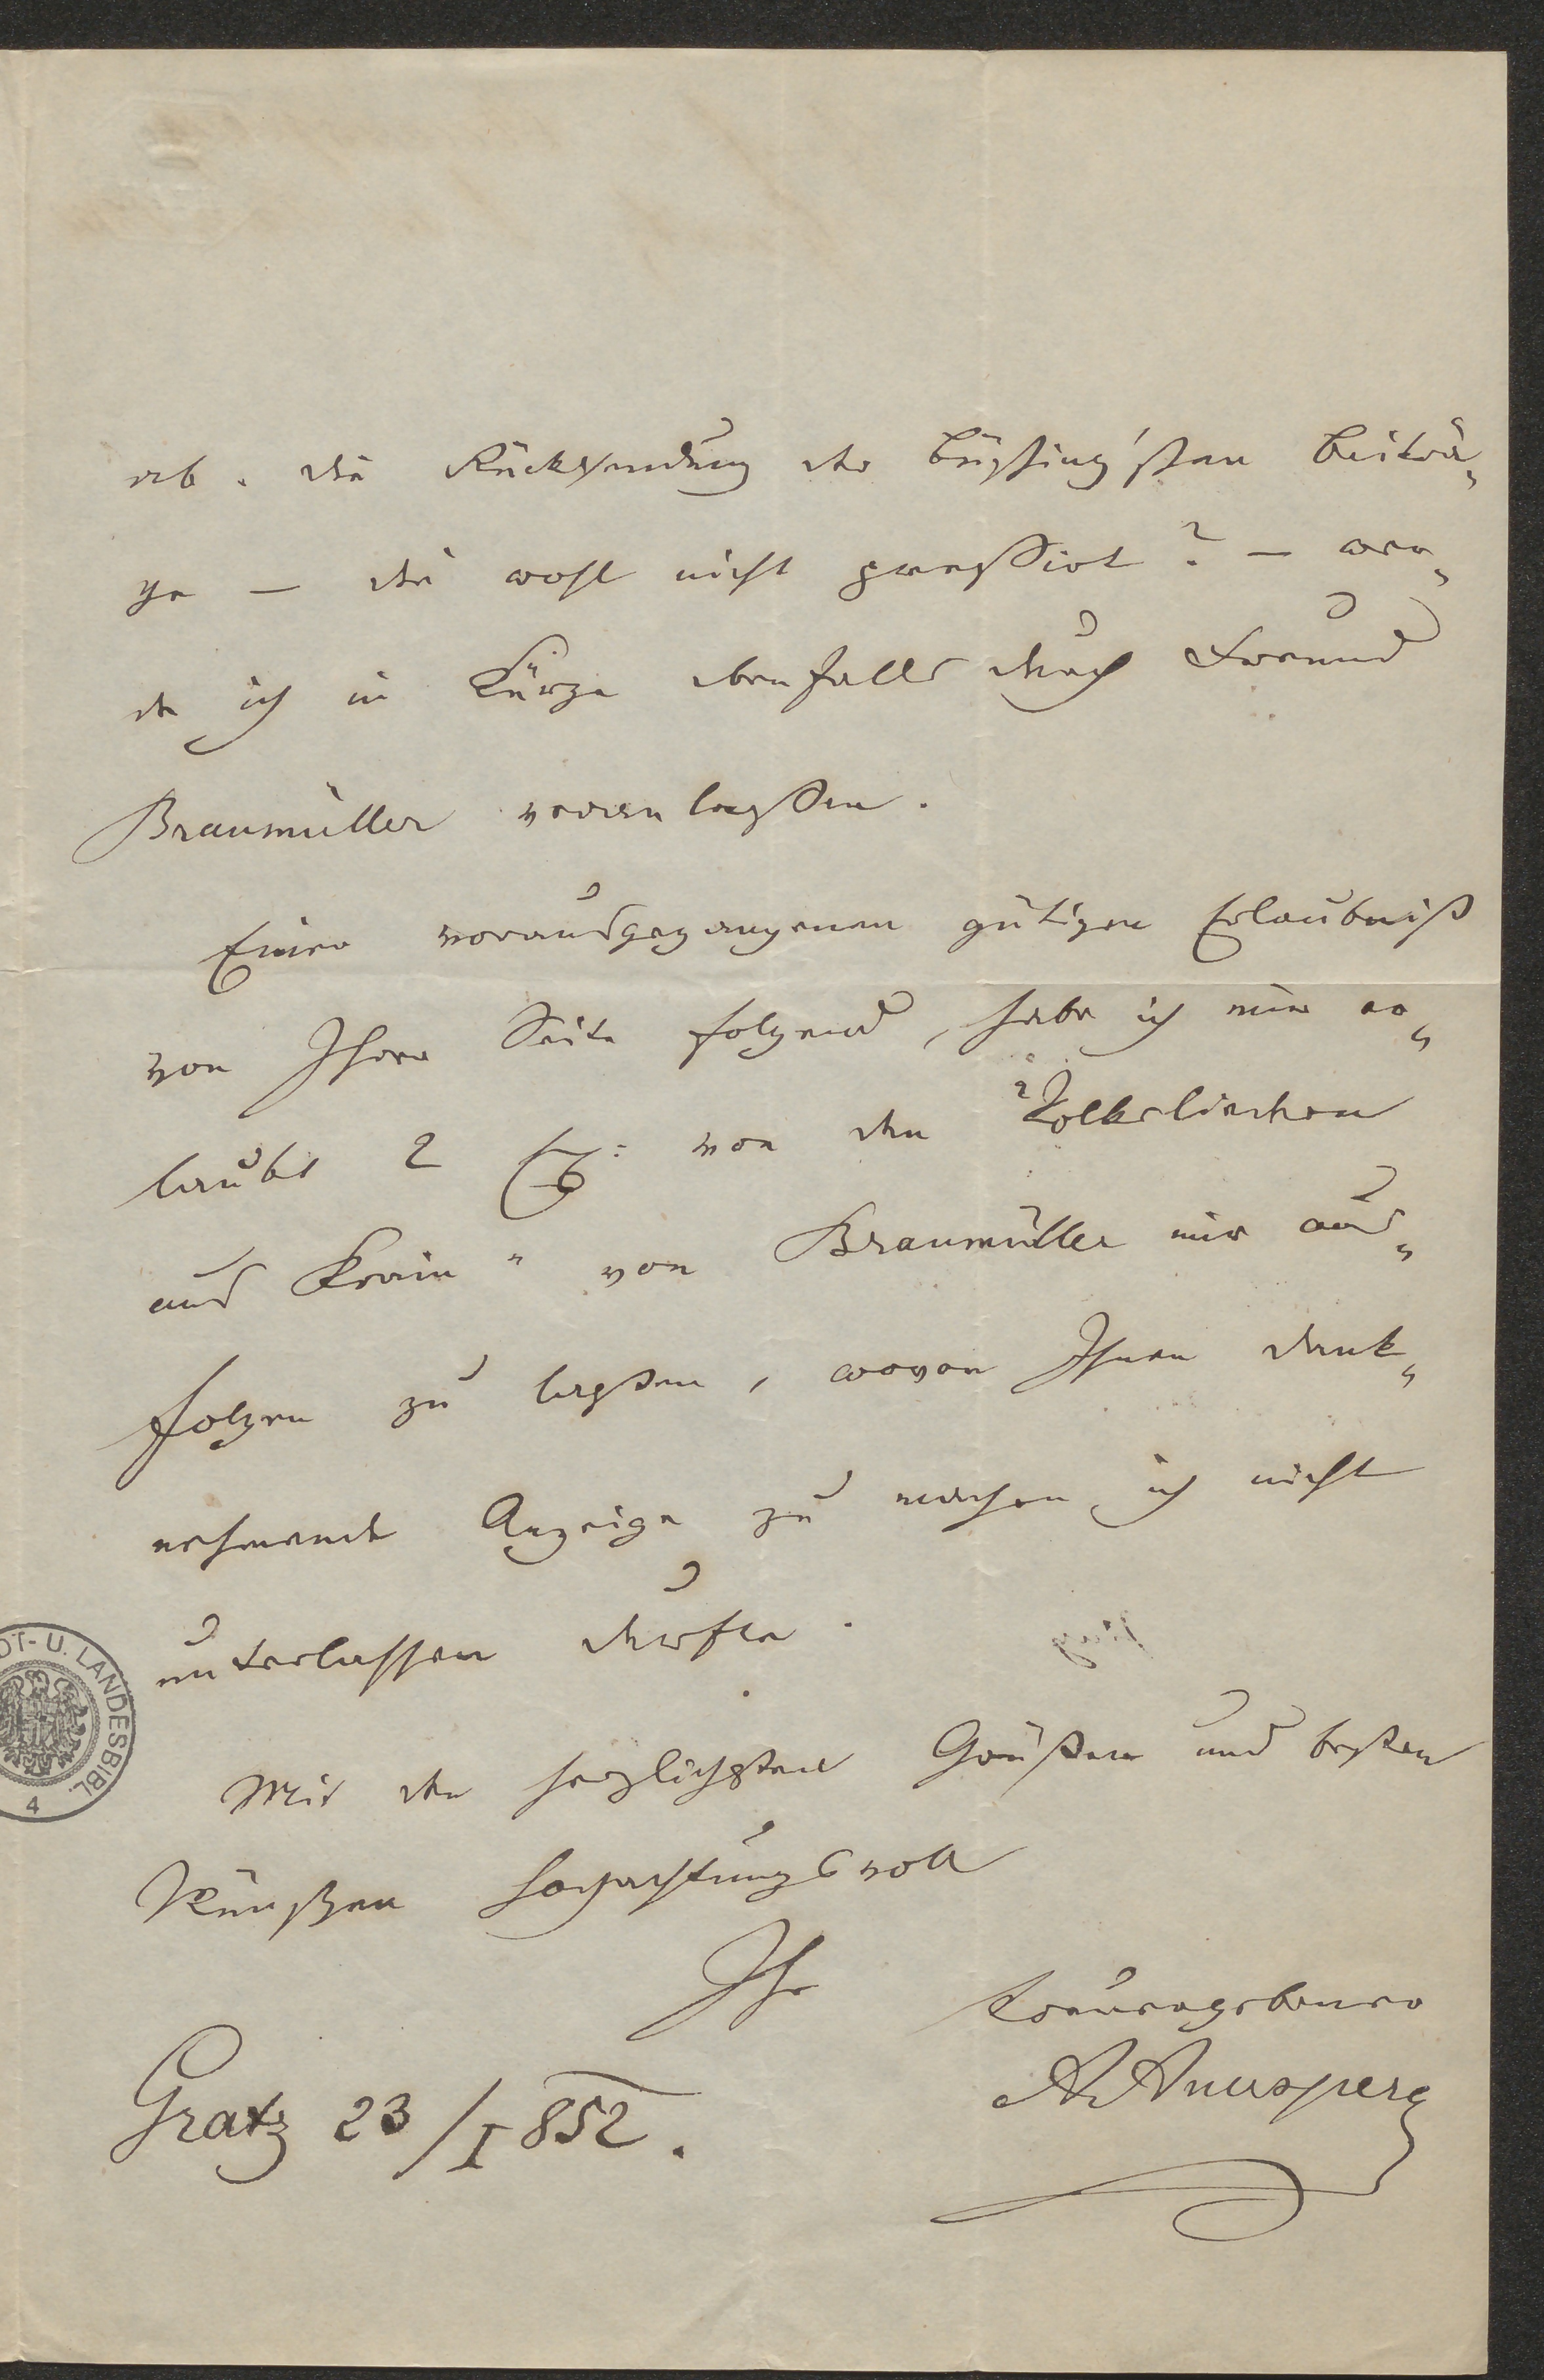 ab. Die Rücksendung der Büsching'schen Beiträ„
ge — die wohl nicht pressirt? — wer„
de ich in Kürze ebenfalls durch Freund
Braumüller veranlassen.
Einer vorausgegangenen gütigen Erlaubniß
von Ihrer Seite folgend, habe ich mir er„
laubt 2 von den „Volksliedern
aus Krain" von Braumüller mir aus„
folgen zu lassen, wovon Ihnen dank„
nehmend Anzeige zu machen ich nicht
unterlassen durfte.
Mit den herzlichsten Grüßen und besten
Wünschen hochachtungsvoll
Ihr treuergebener
AAuersperg
Gratz 23/I 852.
DT- U. LANDESBIBL.
4